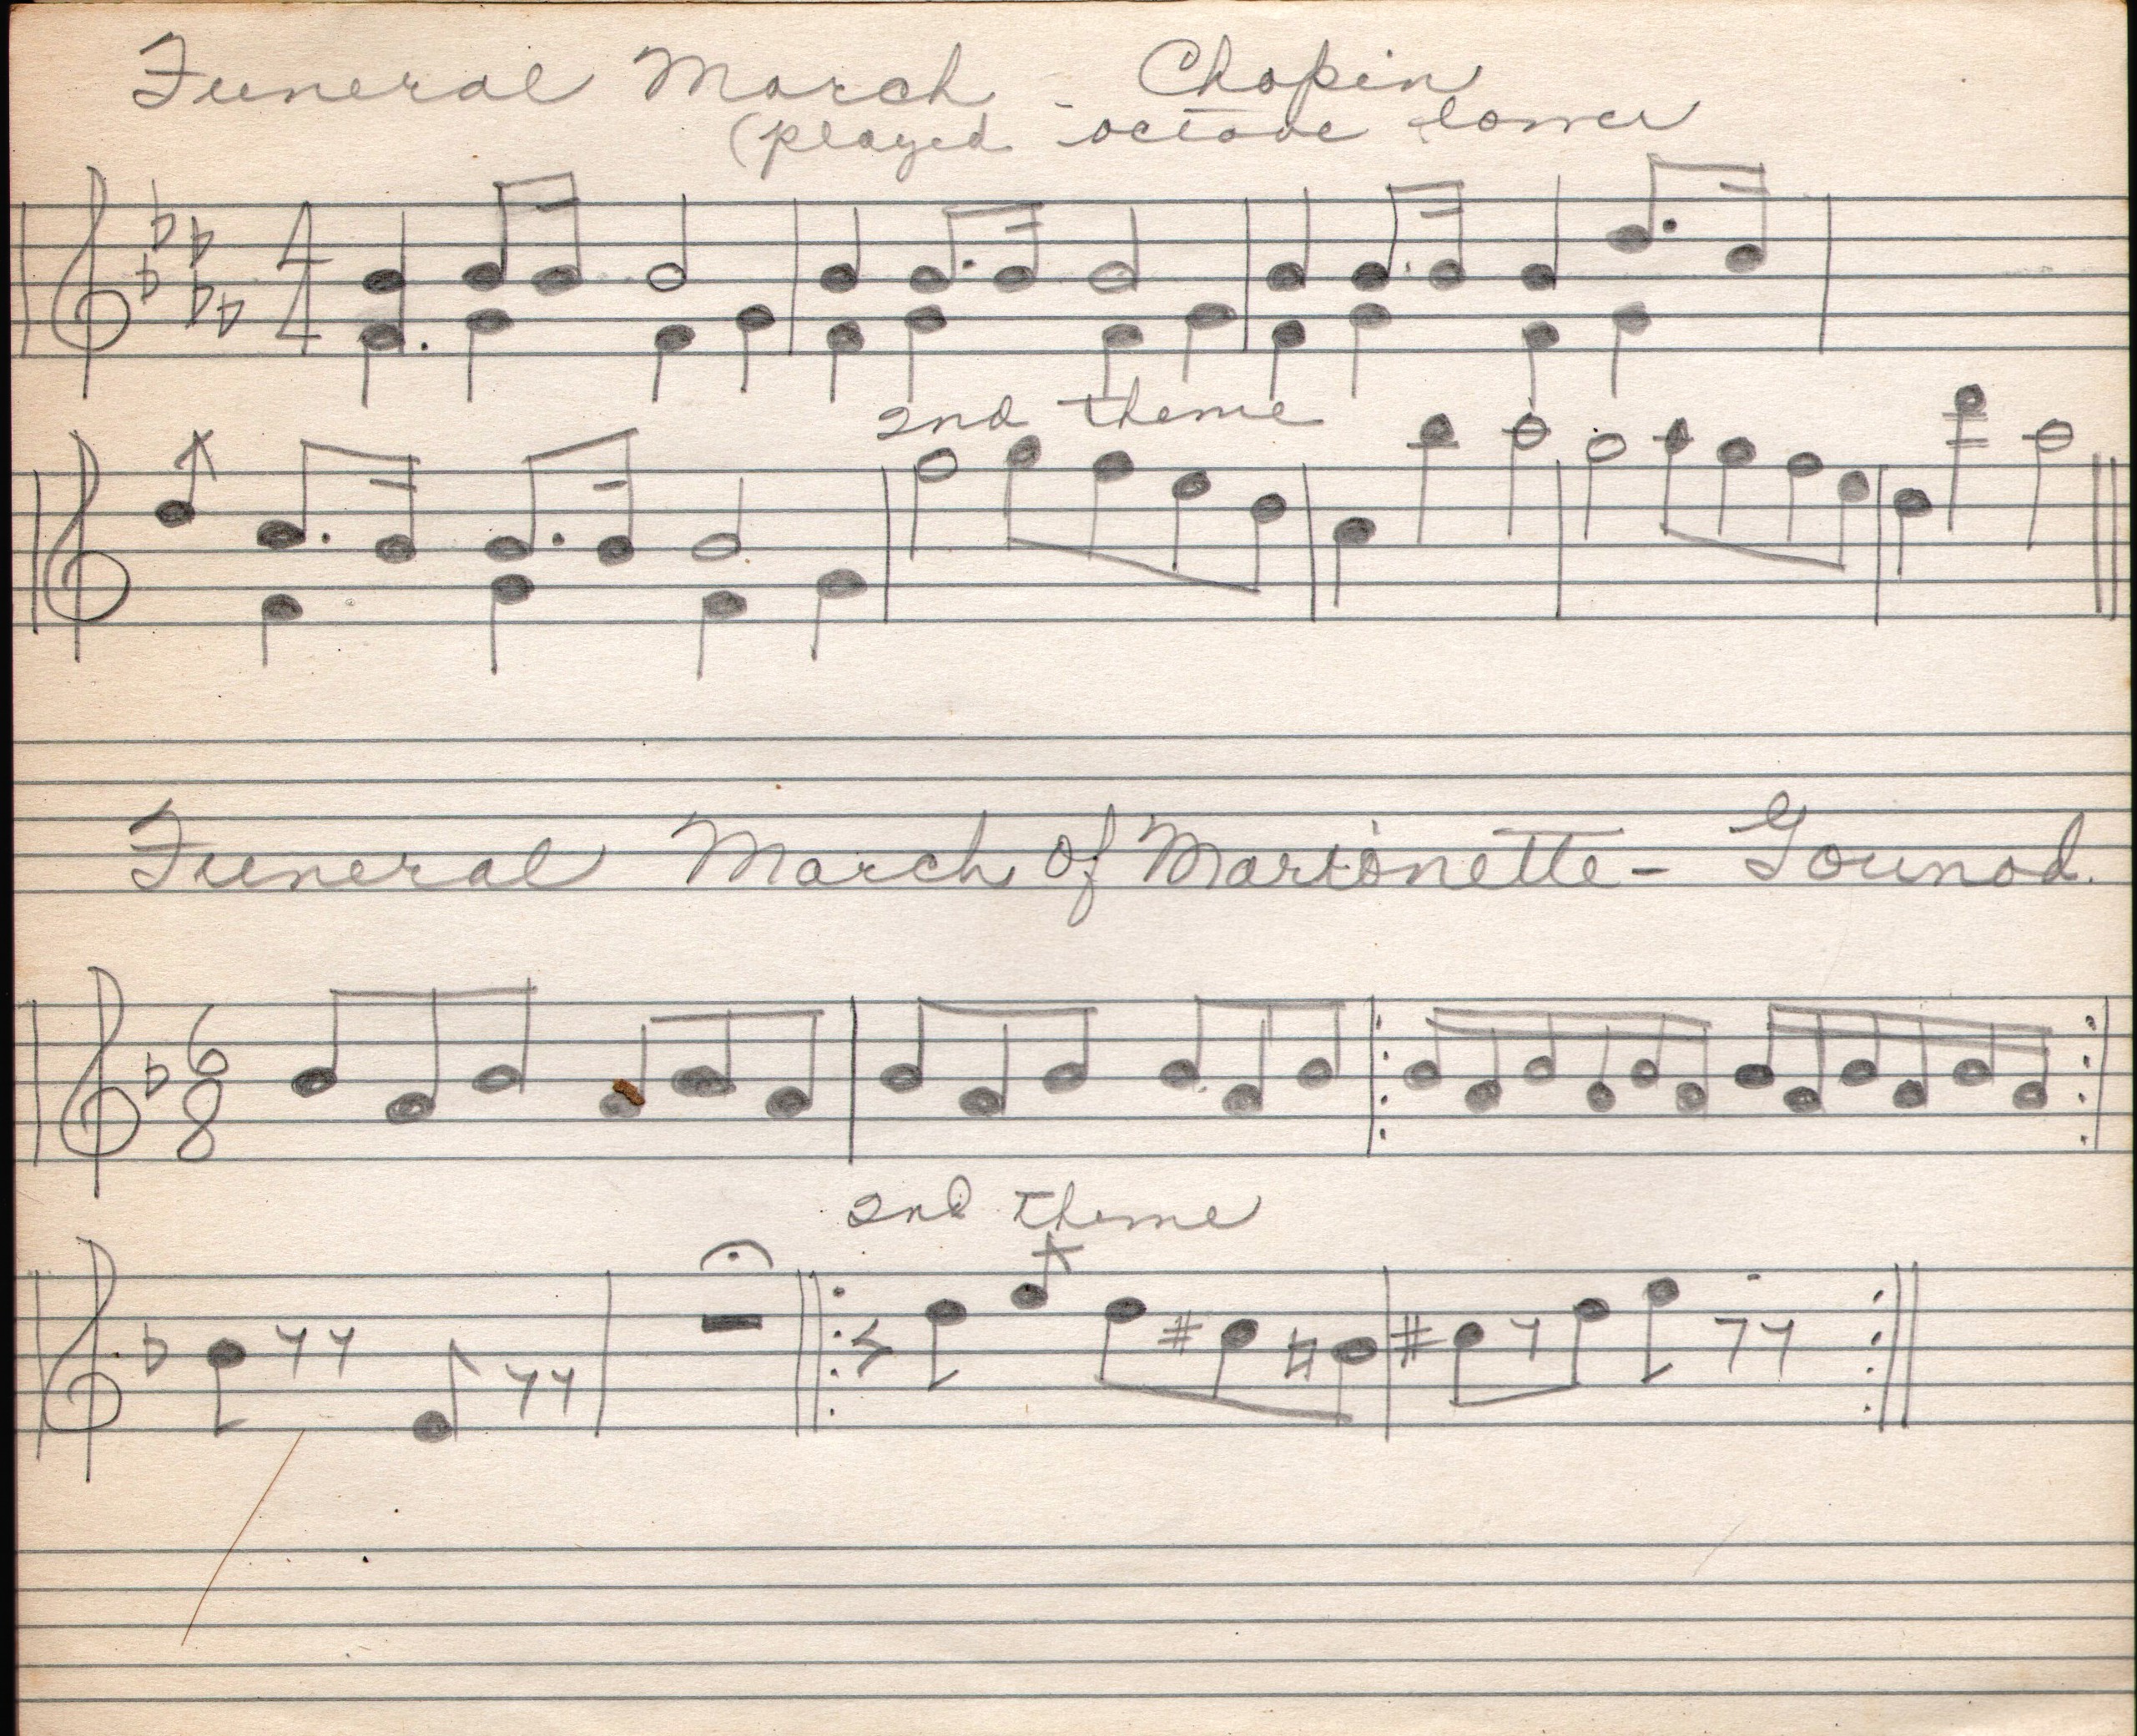 Funeral March - Chopin
(played octave lower
4
4
2nd theme
Funeral March of Marionette - Gounod.
6
8
2nd theme